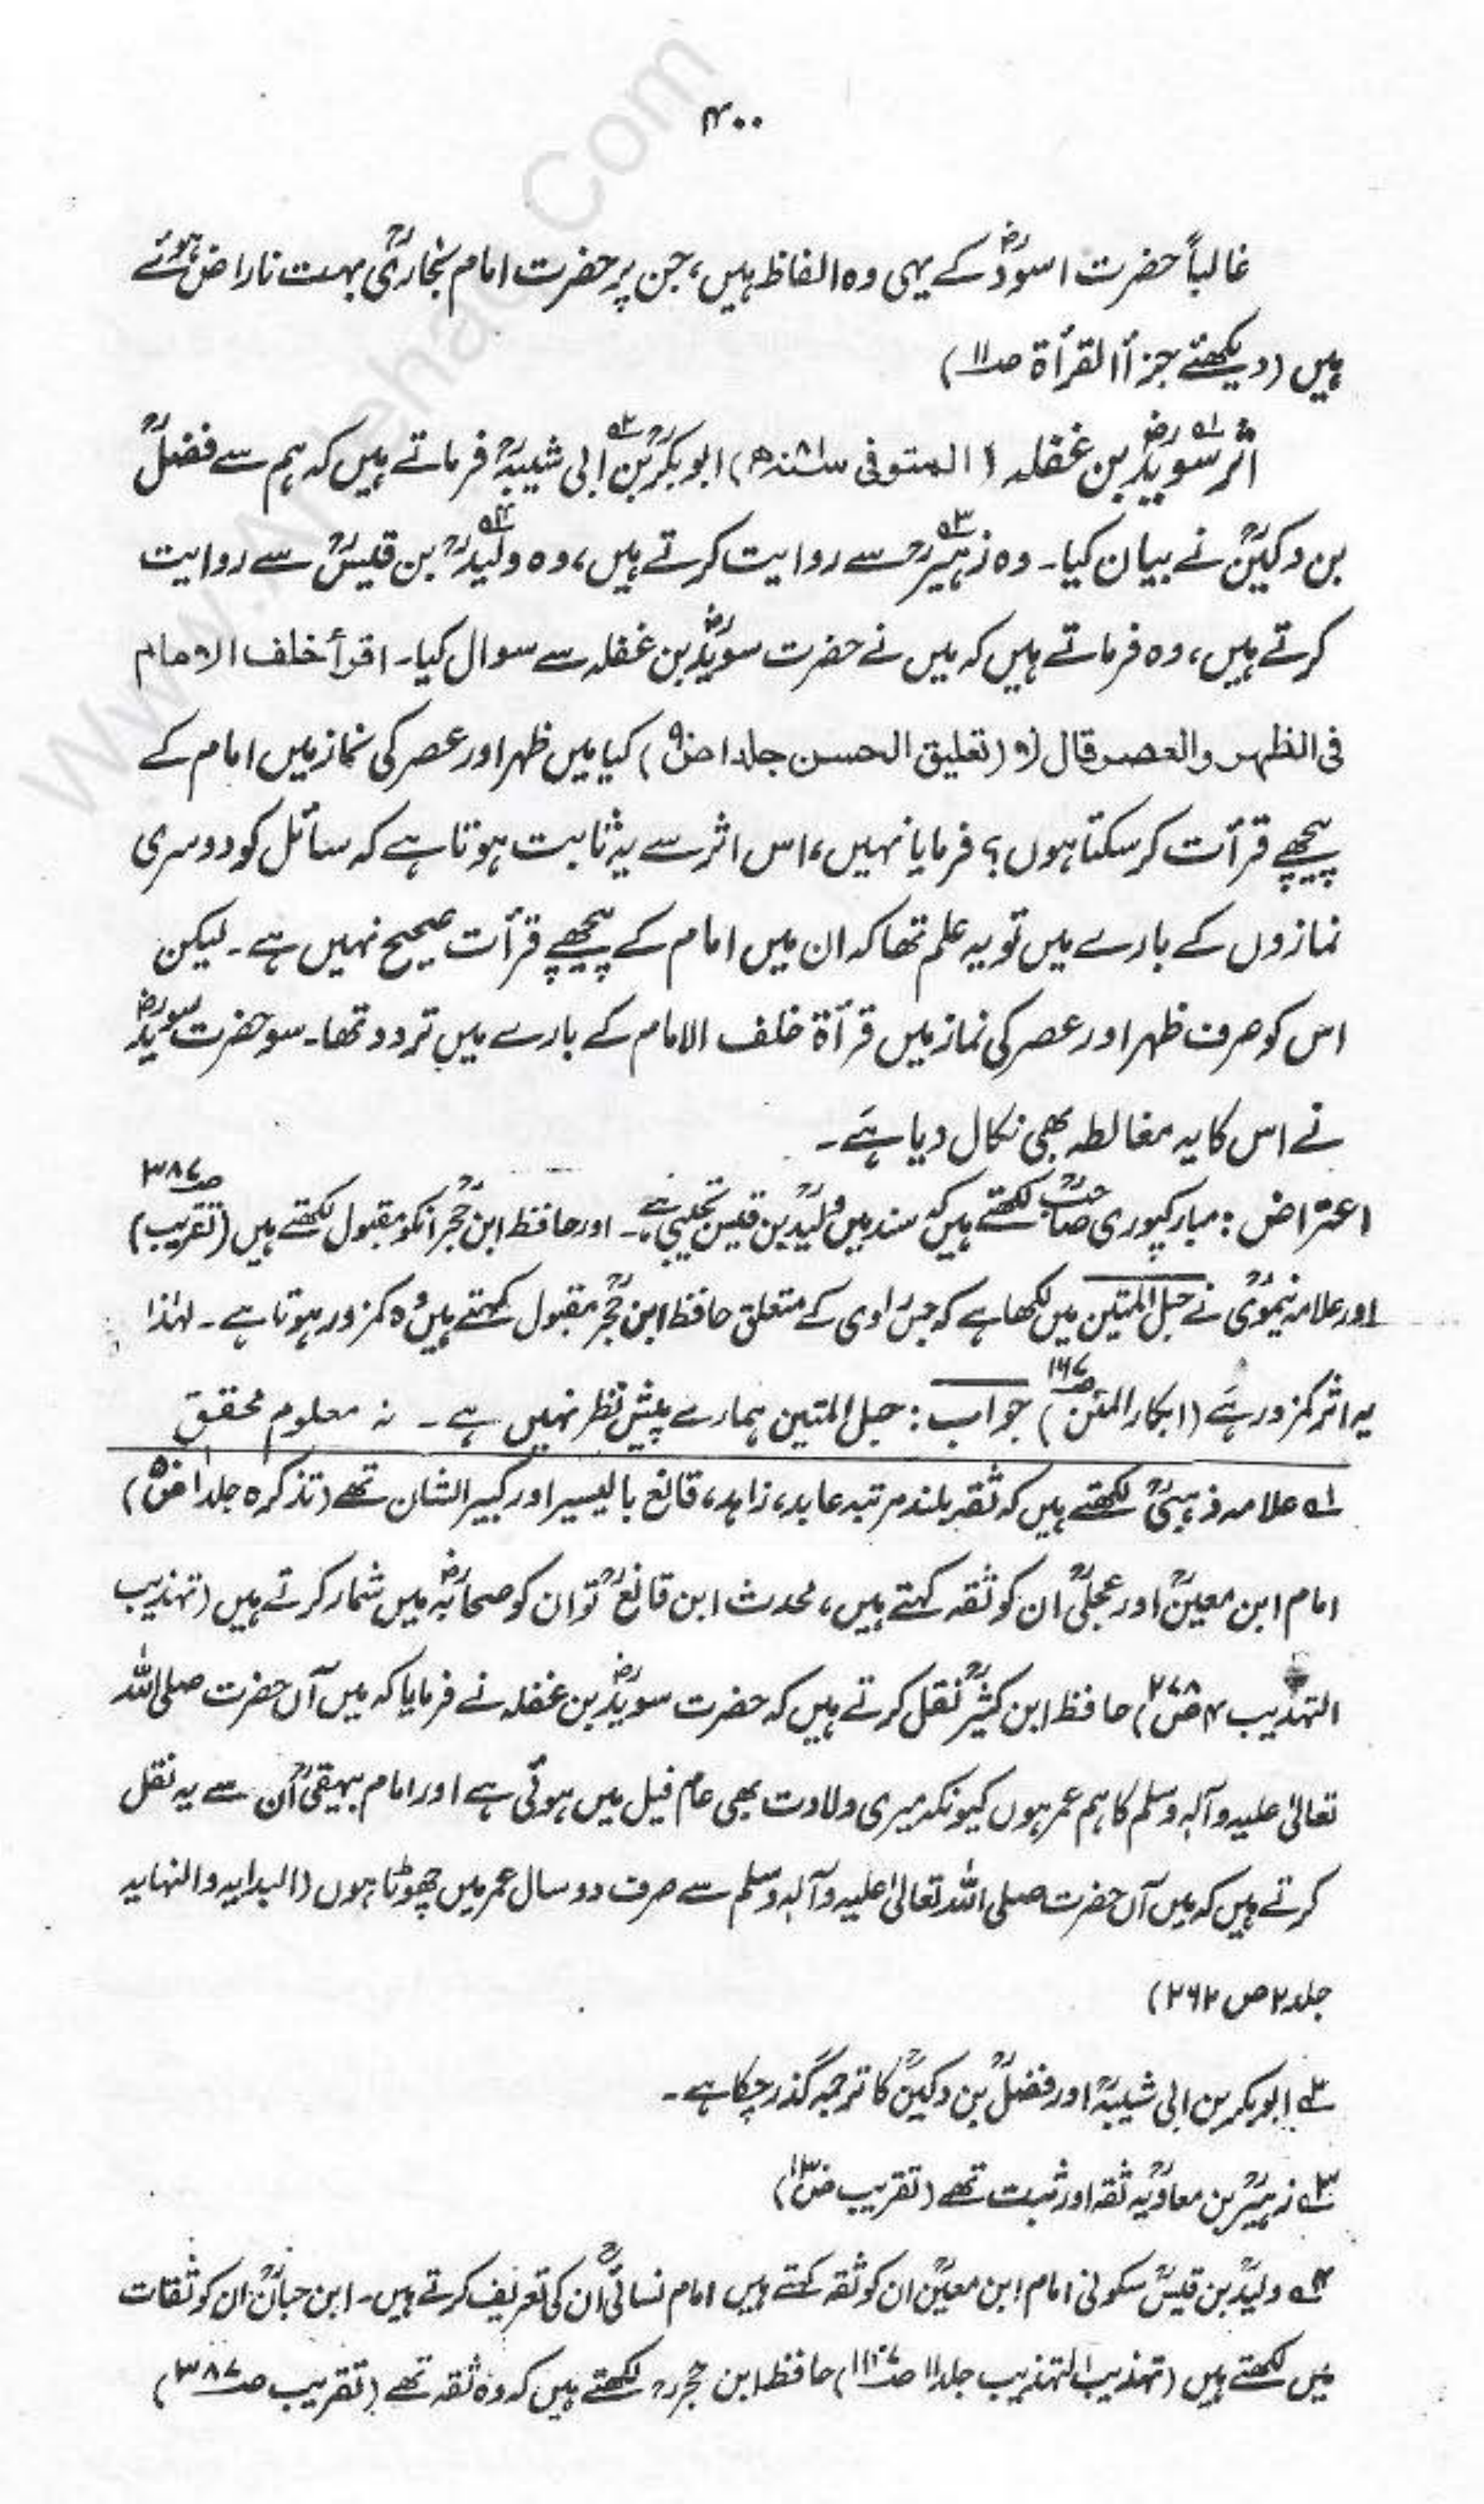 ۴۰۰
غالباً حضرت اسودؓ کے یہی وہ الفاظ ہیں، جن پر حضرت امام بخاریؒ بہت ناراض ہوئے
ہیں (دیکھئے جزأ القرأۃ صـ۱۱)
اثر سویدؓ بن غفلہ (المتوفی سـ۸۱ـنہ ھ) ابوبکرؒ بن ابی شیبہؒ فرماتے ہیں کہ ہم سے فضلؒ
بن دکینؒ نے بیان کیا۔ وہ زہیرؒ سے روایت کرتے ہیں، وہ ولیدؒ بن قیسؒ سے روایت
کرتے ہیں، وہ فرماتے ہیں کہ میں نے حضرت سویدؓ بن غفلہ سے سوال کیا۔ اقرأ خلف الامام
فی الظہر والعصر قال لا (تعلیق الحسن جلد ۱ صـ۹۰) کیا میں ظہر اور عصر کی نماز میں امام کے
پیچھے قرأت کر سکتا ہوں؟ فرمایا نہیں، اس اثر سے یہ ثابت ہوتا ہے کہ سائل کو دوسری
نمازوں کے بارے میں تو یہ علم تھا کہ ان میں امام کے پیچھے قرأت صحیح نہیں ہے۔ لیکن
اس کو صرف ظہر اور عصر کی نماز میں قرأۃ خلف الامام کے بارے میں تردد تھا۔ سو حضرت سویدؓ
نے اس کا یہ مغالطہ بھی نکال دیا ہے۔
اعتراض: مبارکپوری صاحبؒ لکھتے ہیں کہ سند میں ولیدؒ بن قیس تجیبی ہے۔ اور حافظ ابن حجرؒ انکو مقبول لکھتے ہیں (تقریب صـ۳۸۷)
اور علامہ نیمویؒ نے حبل المتین میں لکھا ہے کہ جس راوی کے متعلق حافظ ابن حجرؒ مقبول کہتے ہیں وہ کمزور ہوتا ہے۔ لہٰذا
یہ اثر کمزور ہے (ابکار المنن صـ۱۶۷) جواب: حبل المتین ہمارے پیش نظر نہیں ہے۔ نہ معلوم محقق
۱ـہ علامہ ذہبیؒ لکھتے ہیں کہ ثقہ بلند مرتبہ عابد، زاہد، قانع بالیسیر اور کبیر الشان تھے (تذکرہ جلد ۱ صـ۵۰)
امام ابن معینؒ اور عجلیؒ ان کو ثقہ کہتے ہیں، محدث ابن قانعؒ تو ان کو صحابہؓ میں شمار کرتے ہیں (تہذیب
التہذیب ۴ صـ۲۷۸) حافظ ابن کثیرؒ نقل کرتے ہیں کہ حضرت سویدؓ بن غفلہ نے فرمایا کہ میں آں حضرت صلی اللہ
تعالیٰ علیہ وآلہ وسلم کا ہم عمر ہوں کیونکہ میری ولادت بھی عام فیل میں ہوئی ہے اور امام بیہقیؒ اُن سے یہ نقل
کرتے ہیں کہ میں آں حضرت صلی اللہ تعالیٰ علیہ وآلہ وسلم سے صرف دو سال عمر میں چھوٹا ہوں (البدایہ والنہایہ
جلد ۲ ص ۲۶۲)
۲ـہ ابوبکر بن ابی شیبہؒ اور فضلؒ بن دکینؒ کا ترجمہ گذر چکا ہے۔
۳ـہ زہیرؒ بن معاویہؒ ثقہ اور ثبت تھے (تقریب صـ۱۳۰)
۴ـہ ولیدؒ بن قیسؒ سکونی امام ابن معینؒ ان کو ثقہ کہتے ہیں امام نسائیؒ اُن کی تعریف کرتے ہیں۔ ابن حبانؒ ان کو ثقات
میں لکھتے ہیں (تہذیب التہذیب جلد ۱۱ صـ) حافظ ابن حجرؒ لکھتے ہیں کہ وہ ثقہ تھے (تقریب صـ۳۸۷)